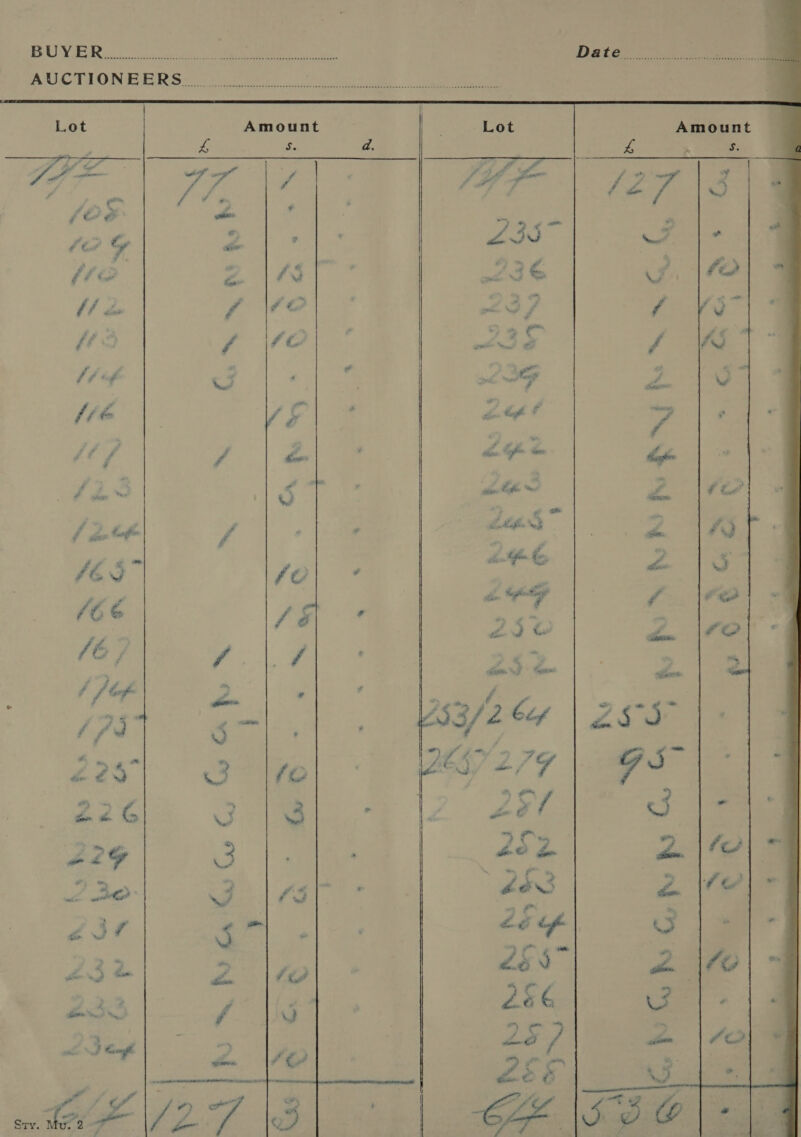 BUYER
Date
AUCTIONEERS
Lot Amount Lot Amount
£ s. d. £ s. d
B/F 77 1 -
108 2 - -
109 2 - -
110 2 15 -
112 1 10 -
113 1 10 -
114 3 - -
116 18 -
117 1 2 -
123 5 -
124 1 - -
165 10 -
166 18 -
167 1 1 -
174 2 - -
175 5 - -
225 3 10
226 3 3 -
229 3 - -
230 3 15 -
231 5 - -
232 2 10
233 1 5
234 2 10
C/F 127 3
B/F 127 3 -
235 3 - -
236 3 10 -
237 1 15 -
238 1 15 -
239 2 5 -
241 7 - -
242 4 - -
243 2 10 -
245 2 15 -
246 2 5
249 1 10 -
250 2 10 -
252 2 2
253/264 255 -
265/279 95 - -
281 3 - -
282 2 10 -
283 2 10 -
284 3 - -
285 2 10 -
286 3 - -
287 2 10 -
288 3 -
C/F 536 - -
Sty. Mu. 2